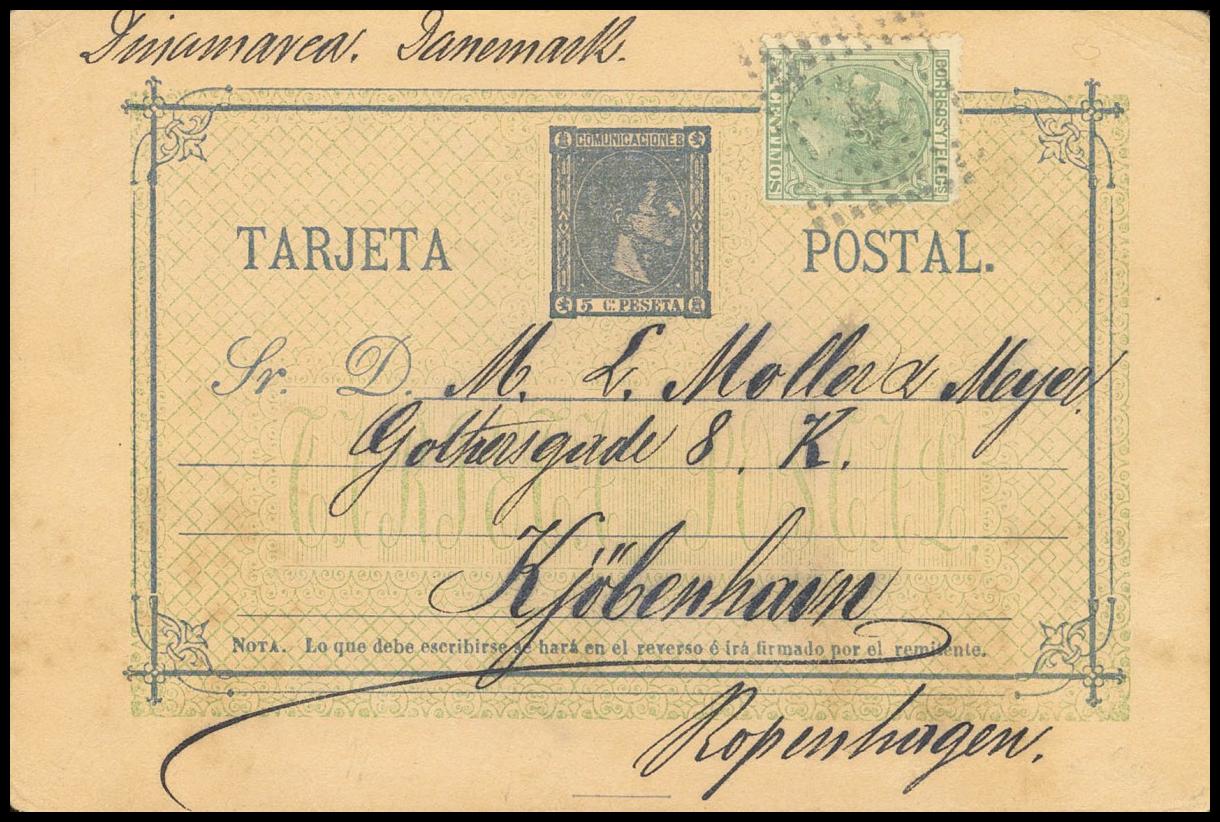 Dinamarca. Danemark.
CORREOS Y TELEGFS
5 CENTIMOS
COMUNICACIONES
5 C. PESETA
TARJETA POSTAL.
Sr. D. M. L. Moller & Meyer.
Gothersgade 8. K.
TARJETA POSTAL.
Kjöbenhavn
NOTA. Lo que debe escribirse se hará en el reverso é irá firmado por el remitente.
Kopenhagen.